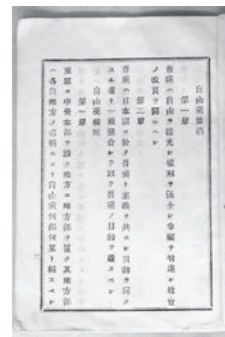 自由黨盟約
第一章
吾黨ハ自由ヲ擴充シ權利ヲ保全シ幸福ヲ增進シ社會
ノ改良ヲ圖ルヘシ
第二章
吾黨ハ日本國ニ於テ吾黨ト主義ヲ共ニシ目的ヲ同ク
スル者ト一致協合シテ以テ吾黨ノ目的ヲ達スヘシ
自由黨規則
第一章
東京ニ中央本部ヲ設ケ地方ニ地方部ヲ置ク其地方部
ハ各自地方ノ名稱ニヨリ自由黨何部何某ト稱スヘシ